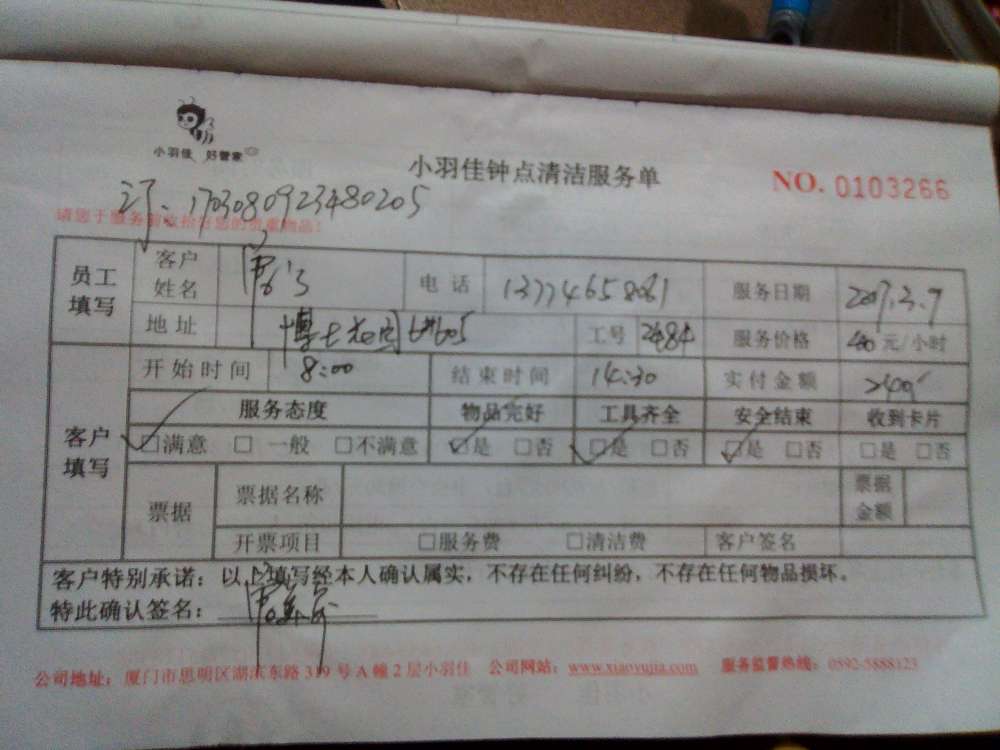 小羽佳 好管家
小羽佳钟点清洁服务单
NO. 0103266
订、1703080923480205
请您于服务前收拾好您的贵重物品!
员工填写 客户姓名 电话 13774658081 服务日期 2017.3.9
地址 6#605 工号 2484 服务价格 40元/小时
客户填写 开始时间 8:00 结束时间 14:30 实付金额
服务态度 物品完好 工具齐全 安全结束 收到卡片
☑满意 □一般 □不满意 ☑是 □否 ☑是 □否 ☑是 □否 □是 □否
票据 票据名称 票据金额
开票项目 □服务费 □清洁费 客户签名
客户特别承诺：以上填写经本人确认属实，不存在任何纠纷，不存在任何物品损坏。
特此确认签名：
公司地址：厦门市思明区湖滨东路319号A幢2层小羽佳 公司网站：www.xiaoyujia.com 服务监督热线：0592-5888123